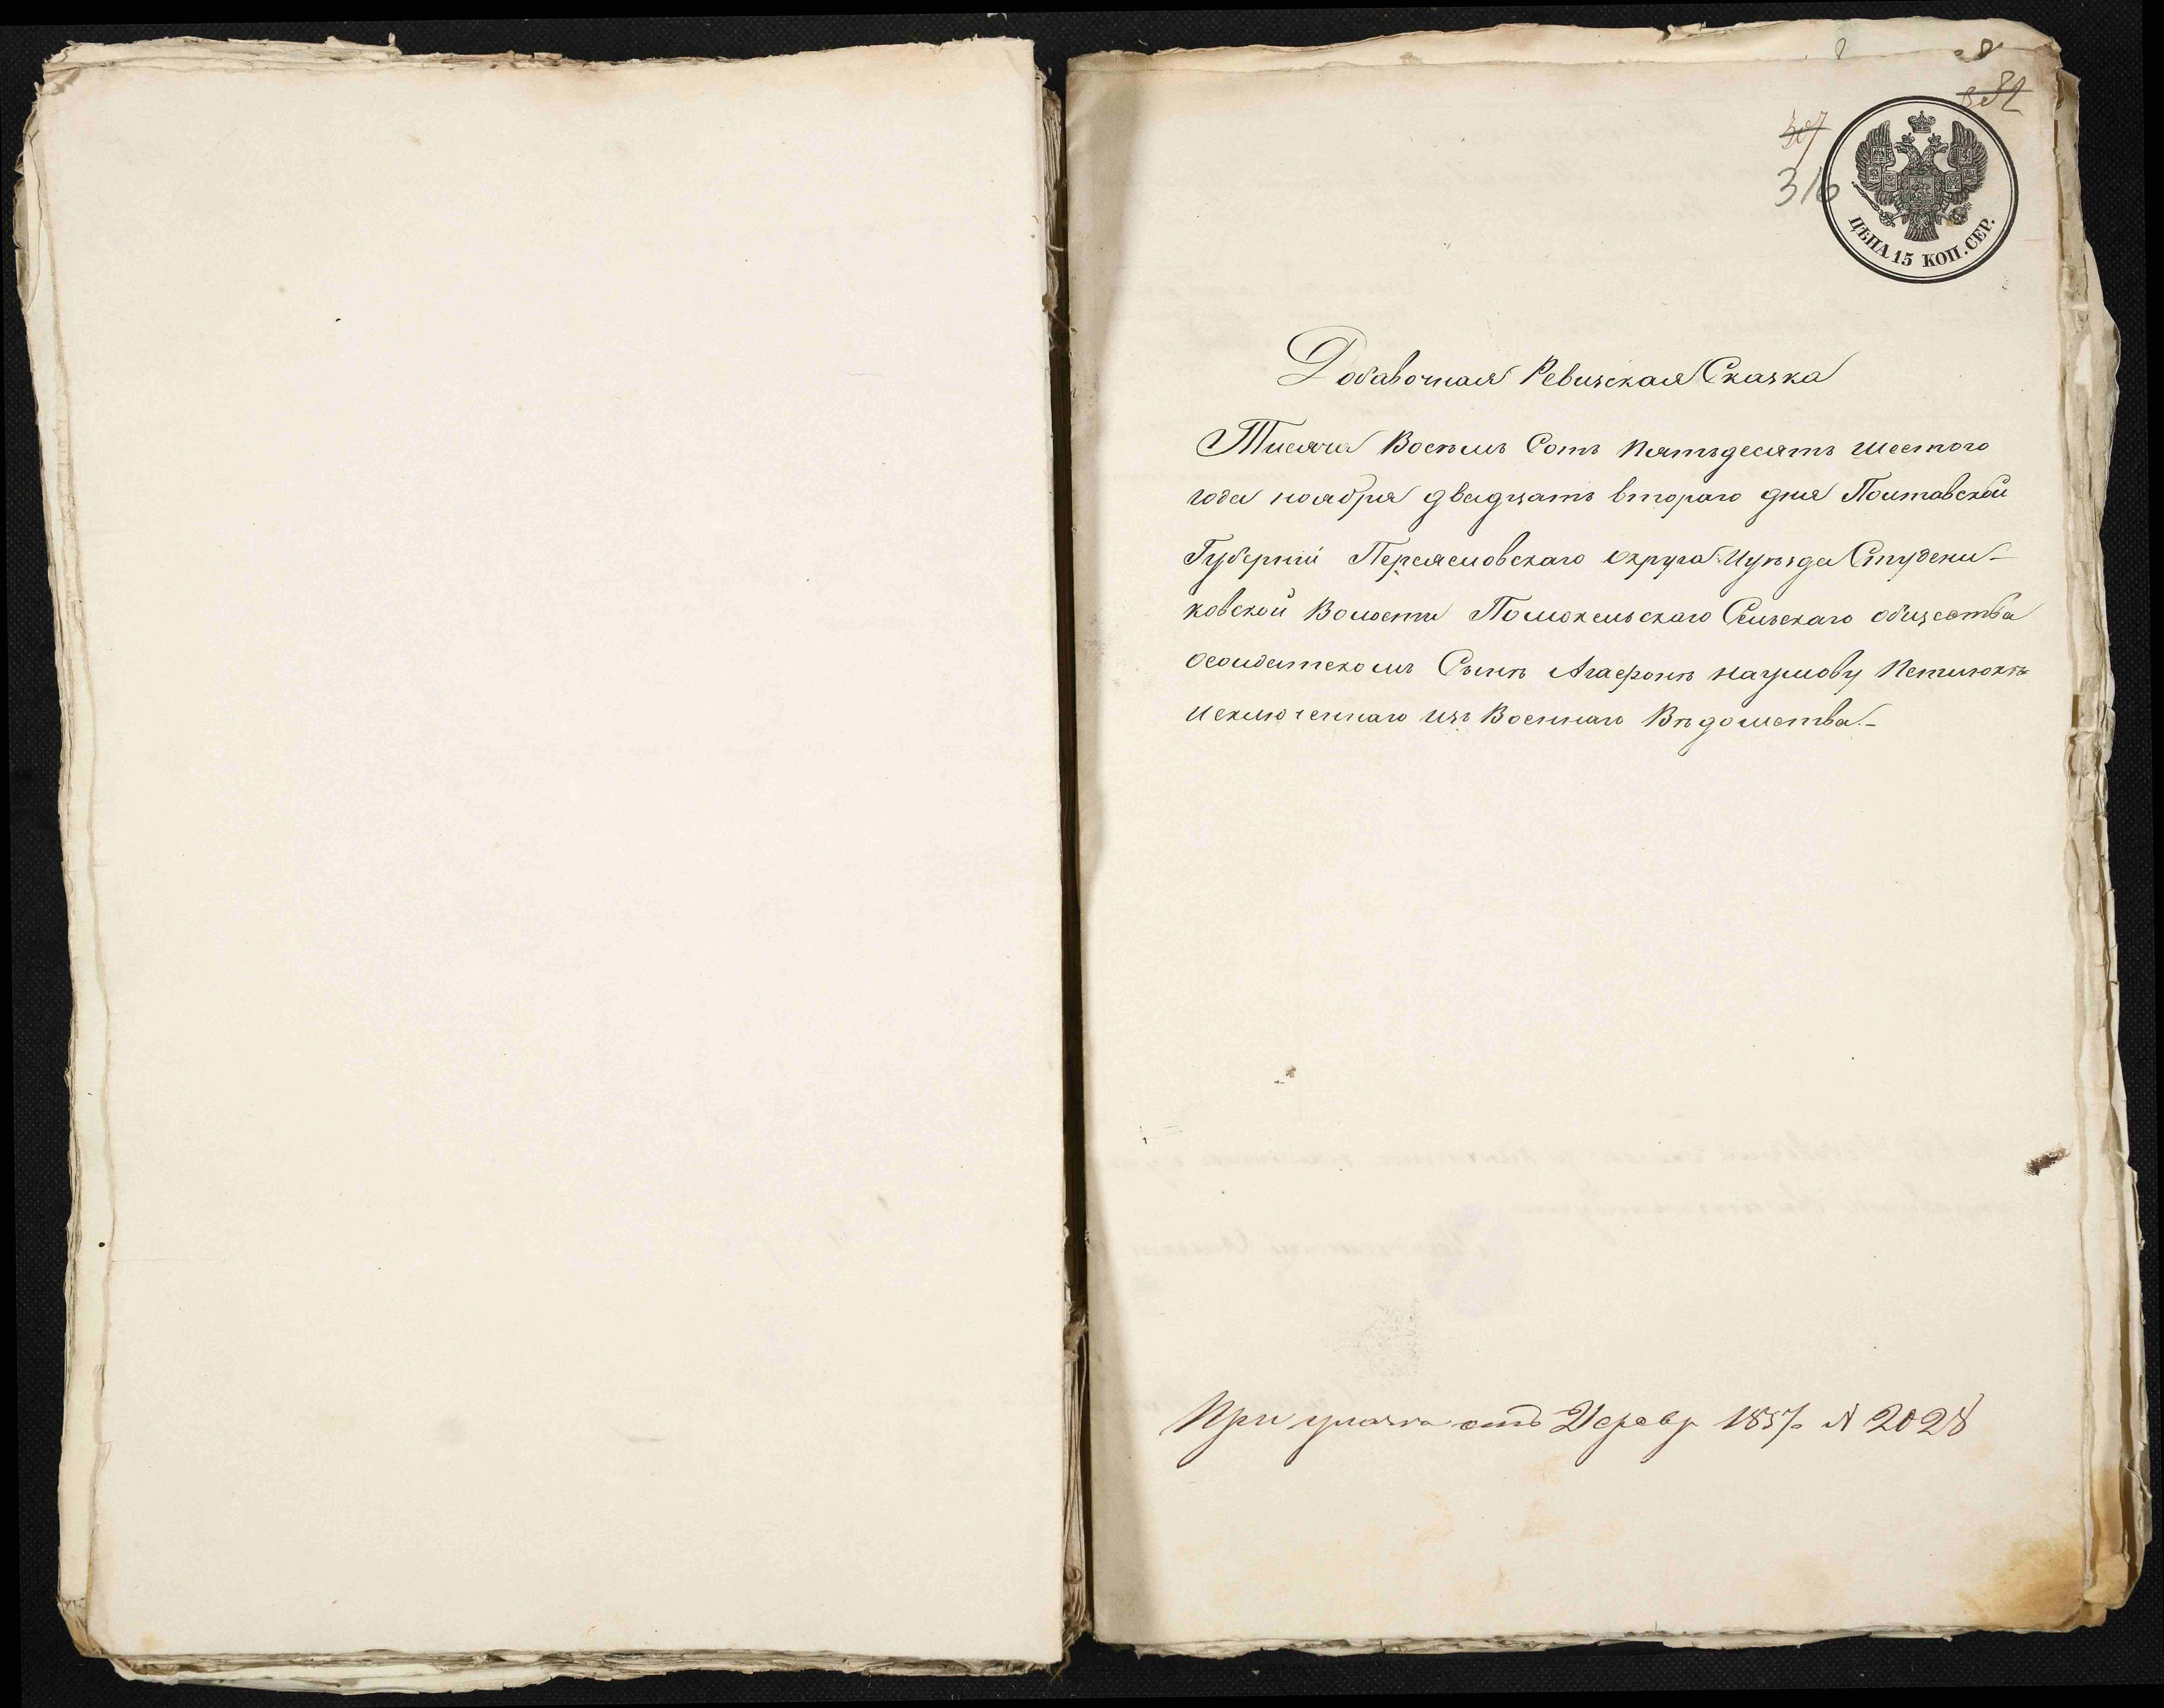 8
307
316
ЦѢНА 15 КОП. СЕР.
Добавочная Ревизская Сказка
Тисяча Восемь Сотъ пятьдесятъ шестого
года ноября двадцать втораго дня Полтавской
Губерніи Переясловскаго округа и уѣзда Студени-
ковской Волости Помокельскаго Сельскаго общества
о солдатскомъ Сынѣ Агафонѣ Наумову Петлюкѣ
исключеннаго изъ Военнаго Вѣдомства.-
При указѣ отъ 2 февр 1857 № 2028